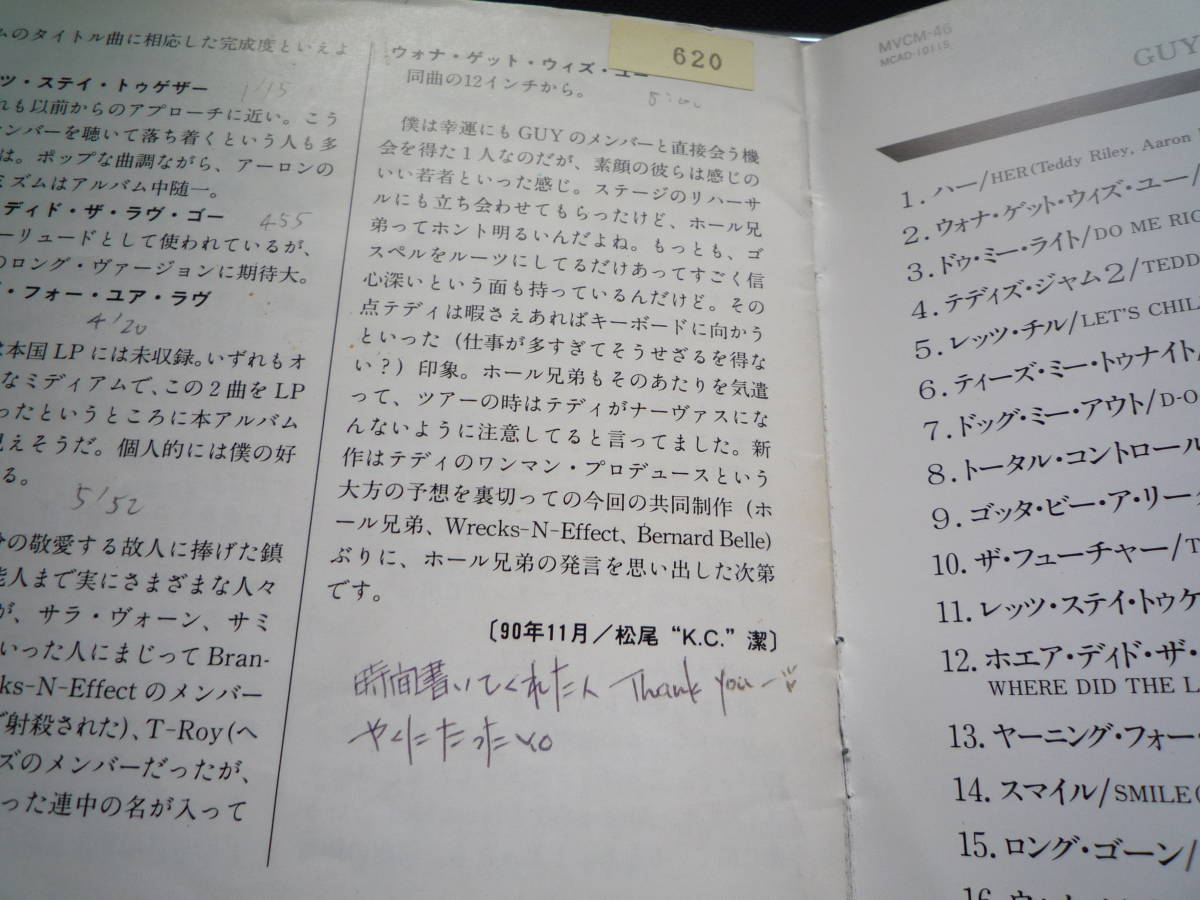 ムのタイトル曲に相応した完成度といえよ
ツ・ステイ・トゥゲザー 1/15
れも以前からのアプローチに近い。こう
ンバーを聴いて落ち着くという人も多
は。ポップな曲調ながら、アーロンの
ミズムはアルバム中随一。
ディド・ザ・ラヴ・ゴー 455
ーリュードとして使われているが、
のロング・ヴァージョンに期待大。
・フォー・ユア・ラヴ
4/20
本国LPには未収録。いずれもオ
なミディアムで、この2曲をLP
ったというところに本アルバム
見えそうだ。個人的には僕の好
る。
5/52
分の敬愛する故人に捧げた鎮
能人まで実にさまざまな人々
が、サラ・ヴォーン、サミ
いった人にまじってBran-
ks-N-Effectのメンバー
で射殺された)、T-Roy(ヘ
ズのメンバーだったが、
った連中の名が入って
620
ウォナ・ゲット・ウィズ・ユー
同曲の12インチから。
僕は幸運にもGUYのメンバーと直接会う機
会を得た1人なのだが、素顔の彼らは感じの
いい若者といった感じ。ステージのリハーサ
ルにも立ち会わせてもらったけど、ホール兄
弟ってホント明るいんだよね。もっとも、ゴ
スペルをルーツにしてるだけあってすごく信
心深いという面も持っているんだけど。その
点テディは暇さえあればキーボードに向かう
といった(仕事が多すぎてそうせざるを得な
い?)印象。ホール兄弟もそのあたりを気遣
って、ツアーの時はテディがナーヴァスにな
んないように注意してると言ってました。新
作はテディのワンマン・プロデュースという
大方の予想を裏切っての今回の共同制作(ホ
ール兄弟、Wrecks-N-Effect、Bernard Belle)
ぶりに、ホール兄弟の発言を思い出した次第
です。
〔90年11月/松尾 “K.C.” 潔〕
時間書いてくれた人 Thank you
やくにたったよ。
MVCM-46
MCAD-10115
GUY
1. ハー/HER(Teddy Riley, Aaron
2. ウォナ・ゲット・ウィズ・ユー/
3. ドゥ・ミー・ライト/DO ME RIG
4. テディズ・ジャム2/TEDD
5. レッツ・チル/LET'S CHIL
6. ティーズ・ミー・トゥナイト/
7. ドッグ・ミー・アウト/D-O
8. トータル・コントロール
9. ゴッタ・ビー・ア・リー
10. ザ・フューチャー/T
11. レッツ・ステイ・トゥゲ
12. ホエア・ディド・ザ・
WHERE DID THE L
13. ヤーニング・フォー・
14. スマイル/SMILE(
15. ロング・ゴーン/
16.